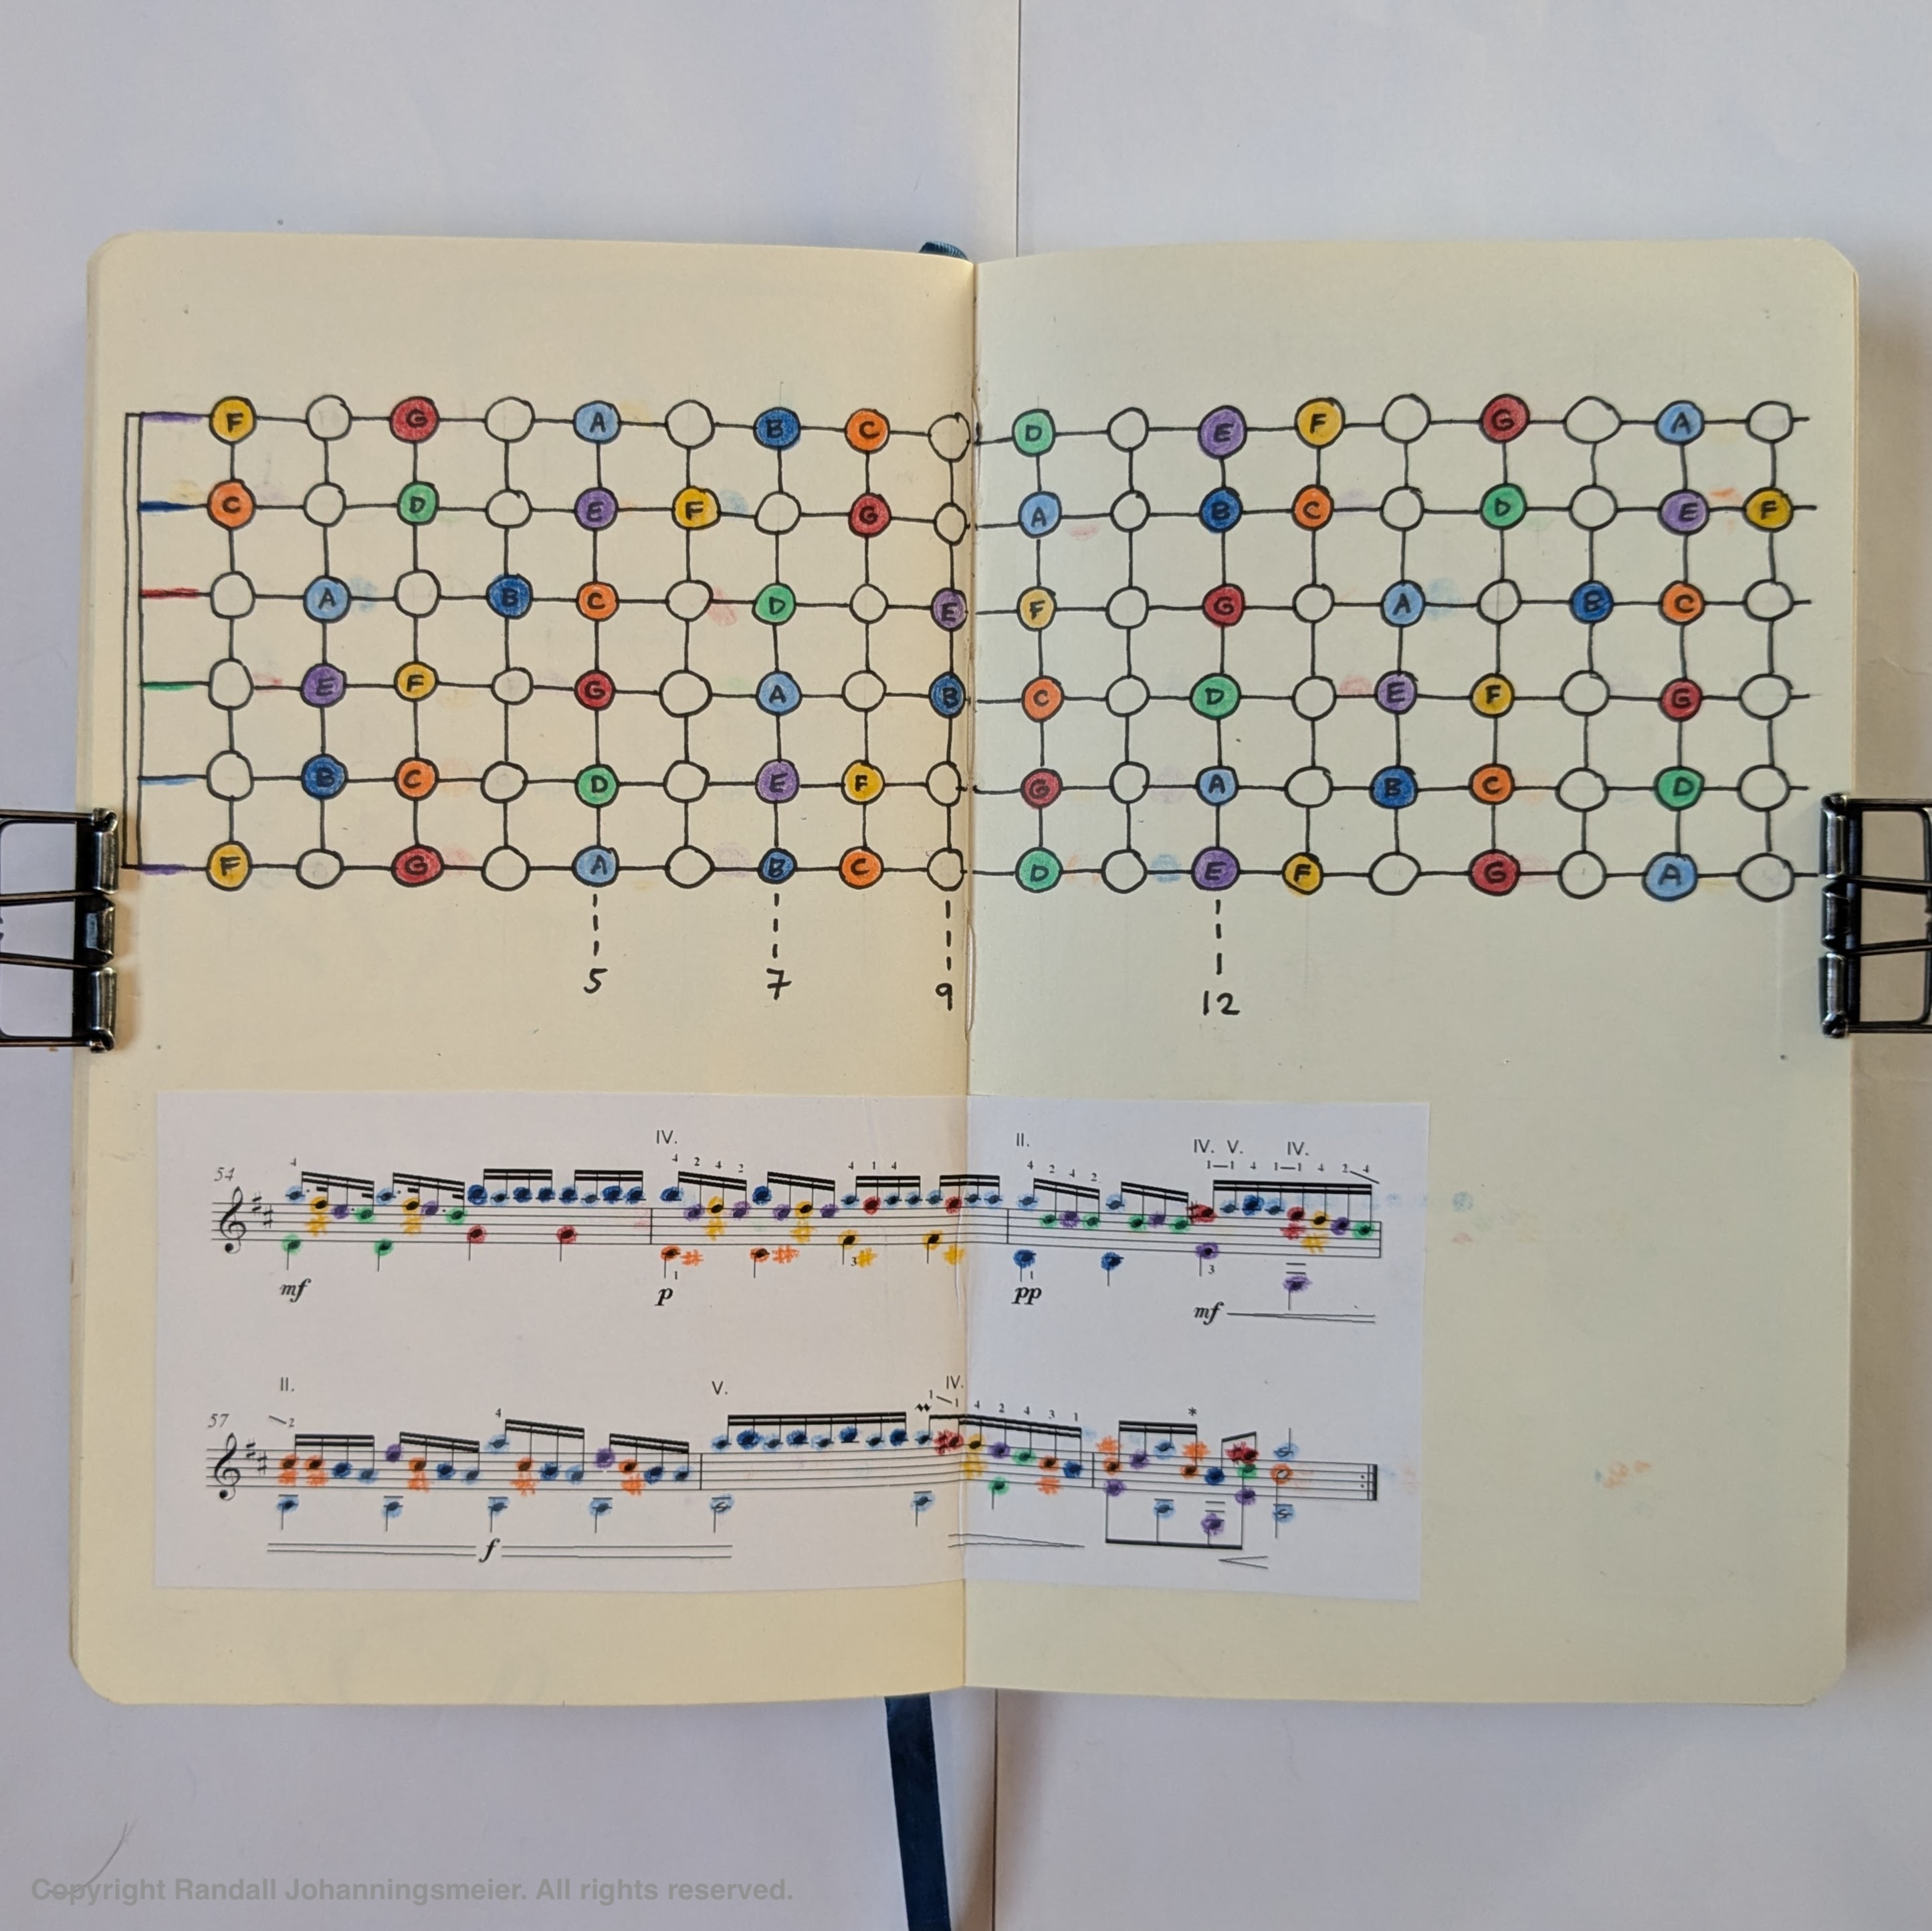 F G A B C D E F G A
C D E F G A B C D E F
A B C D E F G A B C
E F G A B C D E F G
B C D E F G A B C D
F G A B C D E F G A
5 7 9 12
IV. II. IV. V. IV.
4 4 2 4 2 4 1 4 4 2 4 2 1 1 4 1 1 4 2 4
54
3 3
1 1
mf p pp mf
II. V. IV.
57 2 4 1 1 4 2 4 3 1 *
f
Copyright Randall Johanningsmeier. All rights reserved.